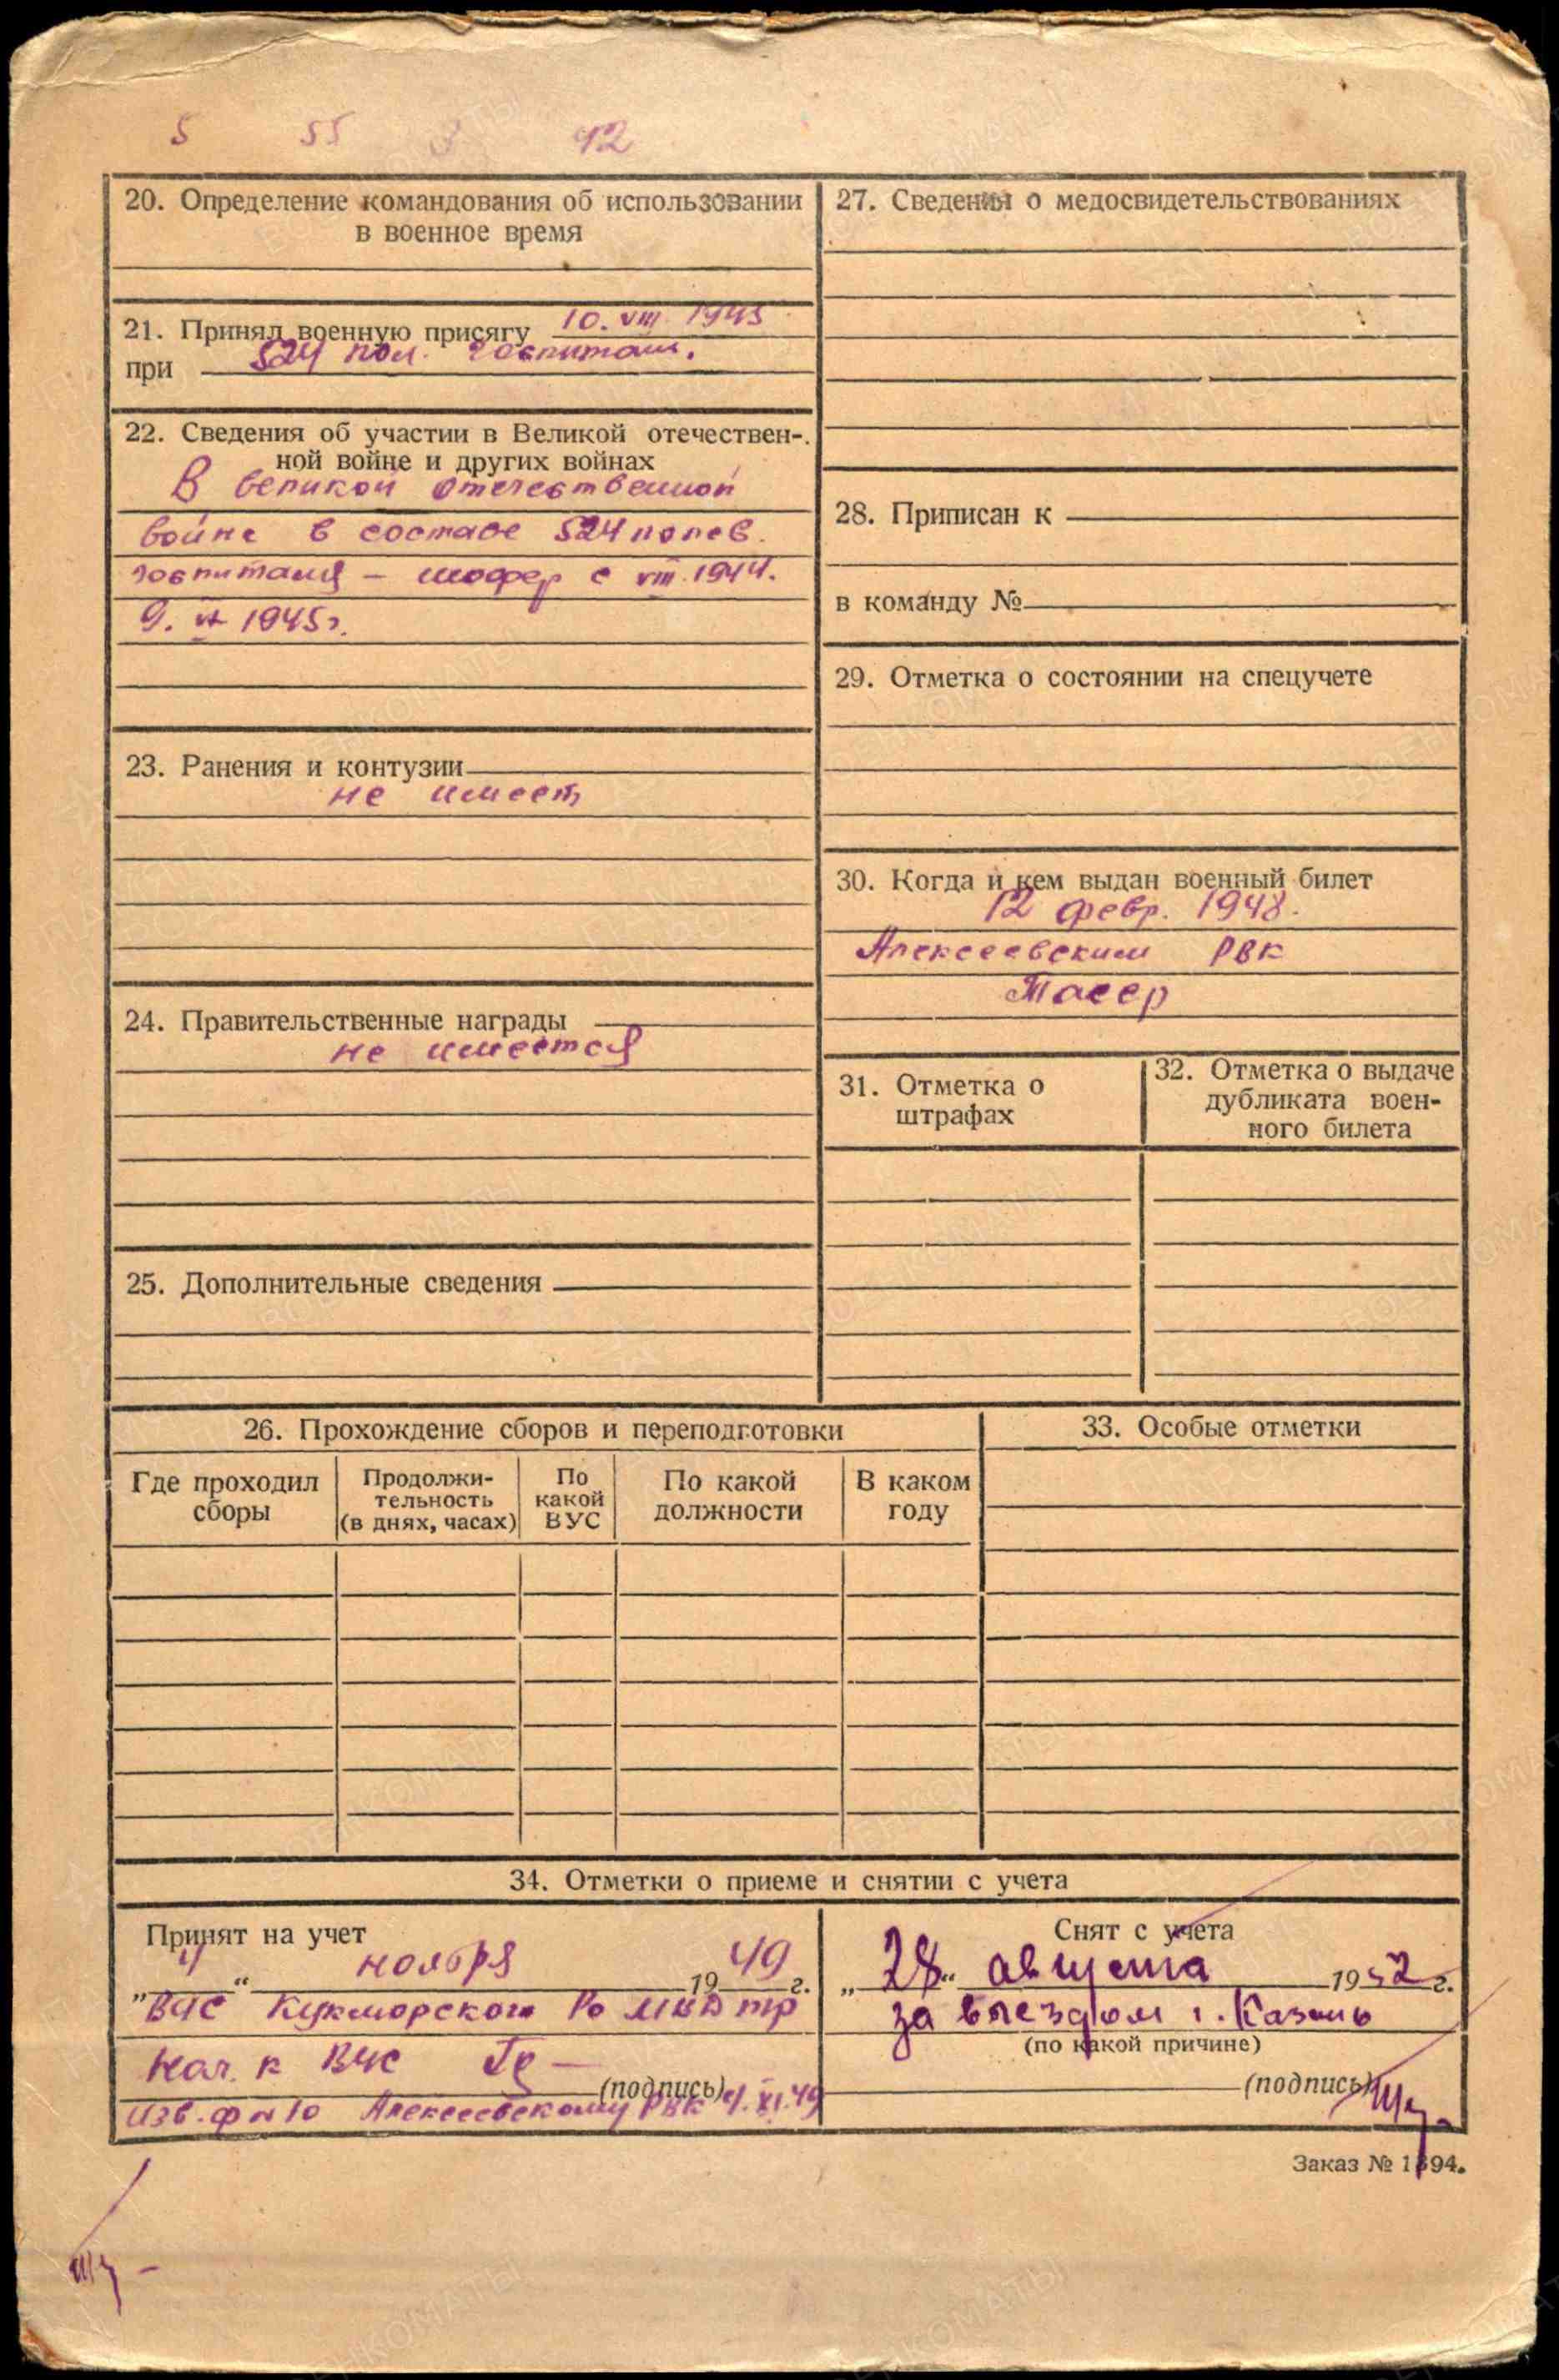 5 55 3 42
20. Определение командования об использовании
в военное время
21. Принял военную присягу 10. VIII. 1945
при 524 пол. госпитале.
22. Сведения об участии в Великой отечествен-
ной войне и других войнах
В великой отечественной
войне в составе 524 полев.
госпиталя – шофер с VIII. 1944.
9. VI 1945г.
23. Ранения и контузии
не имеет
24. Правительственные награды
не имеется
25. Дополнительные сведения
27. Сведения о медосвидетельствованиях
28. Приписан к
в команду №
29. Отметка о состоянии на спецучете
30. Когда и кем выдан военный билет
12 февр. 1948.
Алексеевским РВК
Тасср
31. Отметка о
штрафах
32. Отметка о выдаче
дубликата воен-
ного билета
26. Прохождение сборов и переподготовки
Где проходил
сборы
Продолжи-
тельность
(в днях, часах)
По
какой
ВУС
По какой
должности
В каком
году
33. Особые отметки
34. Отметки о приеме и снятии с учета
Принят на учет
„4“ ноября 1949 г.
ВУС Кукморского Ро МВД тр
Нач. к ВУС
(подпись)
Изв. ф №10 Алексеевскому РВК 4. XI. 49
Снят с учета
„28“ августа 1952 г.
за выездом г. Казань
(по какой причине)
(подпись)
Заказ № 1394.